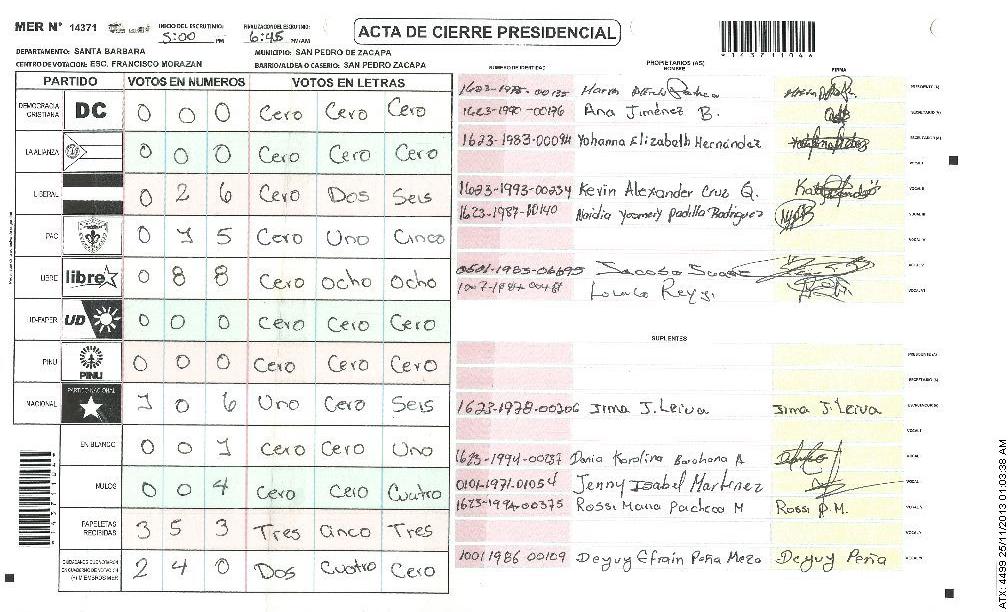 MER N° 14371 INICIO DEL ESCRUTINIO: 5:00 PM FINALIZACION DEL ESCRUTINIO: 6:45 PM/AM ACTA DE CIERRE PRESIDENCIAL
DEPARTAMENTO: SANTA BARBARA MUNICIPIO: SAN PEDRO DE ZACAPA
CENTRO DE VOTACION: ESC. FRANCISCO MORAZAN BARRIO/ALDEA O CASERIO: SAN PEDRO ZACAPA
PARTIDO VOTOS EN NUMEROS VOTOS EN LETRAS
DEMOCRACIA CRISTIANA DC 0 0 0 Cero Cero Cero
LA ALIANZA 0 0 0 Cero Cero Cero
LIBERAL 0 2 6 Cero Dos Seis
PAC 0 1 5 Cero Uno Cinco
LIBRE libre 0 8 8 Cero ocho ocho
UD-FAPER UD 0 0 0 Cero Cero Cero
PINU PINU 0 0 0 Cero Cero Cero
NACIONAL PARTIDO NACIONAL 1 0 6 Uno Cero Seis
EN BLANCO 0 0 1 Cero Cero Uno
NULOS 0 0 4 Cero Cero Cuatro
PAPELETAS RECIBIDAS 3 5 3 Tres cinco Tres
2 4 0 Dos Cuatro Cero
NUMERO DE IDENTIDAD PROPIETARIOS (AS) NOMBRE FIRMA
PRESIDENTE (A)
1623-1990-00176 Ana Jiménez B. SECRETARIO (A)
1623-1983-00094 Yohanna Elizabeth Hernández
1623-1993-00234 Kevin Alexander Cruz Q.
1623-1987-00140 Naidia Yosmery Padilla Rodriguez
0501-1983-06695
Reyes
SUPLENTES
PRESIDENTE (A)
SECRETARIO (A)
1623-1978-00306 Irma J. Leiva Irma J. Leiva
1623-1994-00237 Dania Karolina Barahona A
0101-1971-01054 Jenny Isabel Martinez
1623-1994-00375 Rossi Maria Pacheco M Rossi P.M.
1001 1986 00109 Deyuy Efrain Peña Meza Deyuy Peña
ATX: 4499 25/11/2013 01:03:38 AM